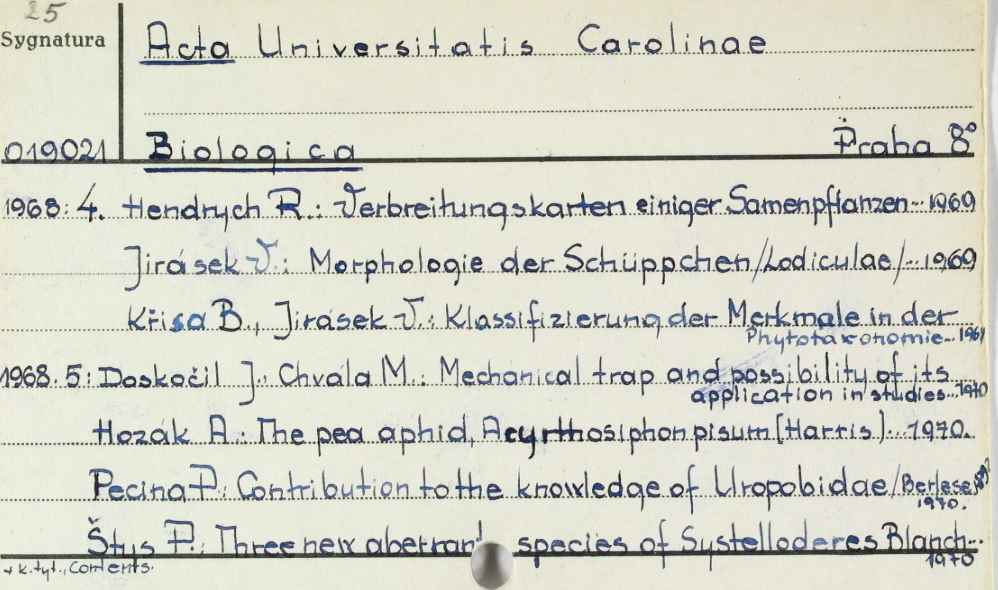 25
Sygnatura
Acta Universitatis Carolinae
019021 Biologica Praha 8°
1968:4. Hendrych R.: Verbreitungskarten einiger Samenpflanzen... 1969
Jirásek V.: Morphologie der Schüppchen/Lodiculae/... 1969
Křisa B., Jirásek V.: Klassifizierung der Merkmale in der
Phytotaxonomie... 1969
1968:5: Doskočil J., Chvála M.: Mechanical trap and possibility of its
application in studies... 1970
Hozák A.: The pea aphid, Acyrthosiphon pisum [Harris]... 1970.
Pecina P.: Contribution to the knowledge of Uropobidae/Berlese,
1970.
Štys P.: Three new aberrant species of Systelloderes Blanch...
1970
k. tyt., Contents.